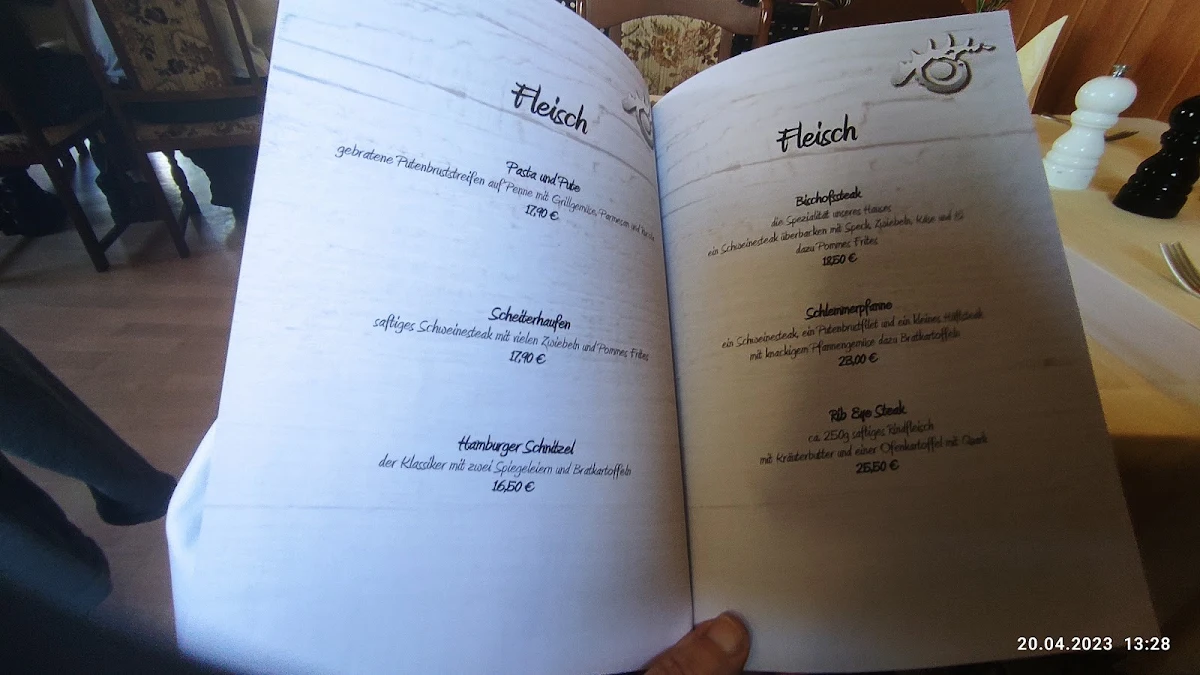 Fleisch
Pasta und Pute
gebratene Putenbruststreifen auf Penne mit Grillgemüse, Parmesan und
17,90 €
Scheiterhaufen
saftiges Schweinesteak mit vielen Zwiebeln und Pommes Frites
17,90 €
Hamburger Schnitzel
der Klassiker mit zwei Spiegeleiern und Bratkartoffeln
16,50 €
Fleisch
Bischofsteak
die Spezialität unseres Hauses
ein Schweinesteak überbacken mit Speck, Zwiebeln, Käse und
dazu Pommes Frites
18,50 €
Schlemmerpfanne
ein Schweinesteak, ein Putenbrustfilet und ein kleines Hüftsteak
mit knackigem Pfannengemüse dazu Bratkartoffeln
23,00 €
Rib Eye Steak
ca. 250g saftiges Rindfleisch
mit Kräuterbutter und einer Ofenkartoffel mit Quark
25,50 €
20.04.2023 13:28